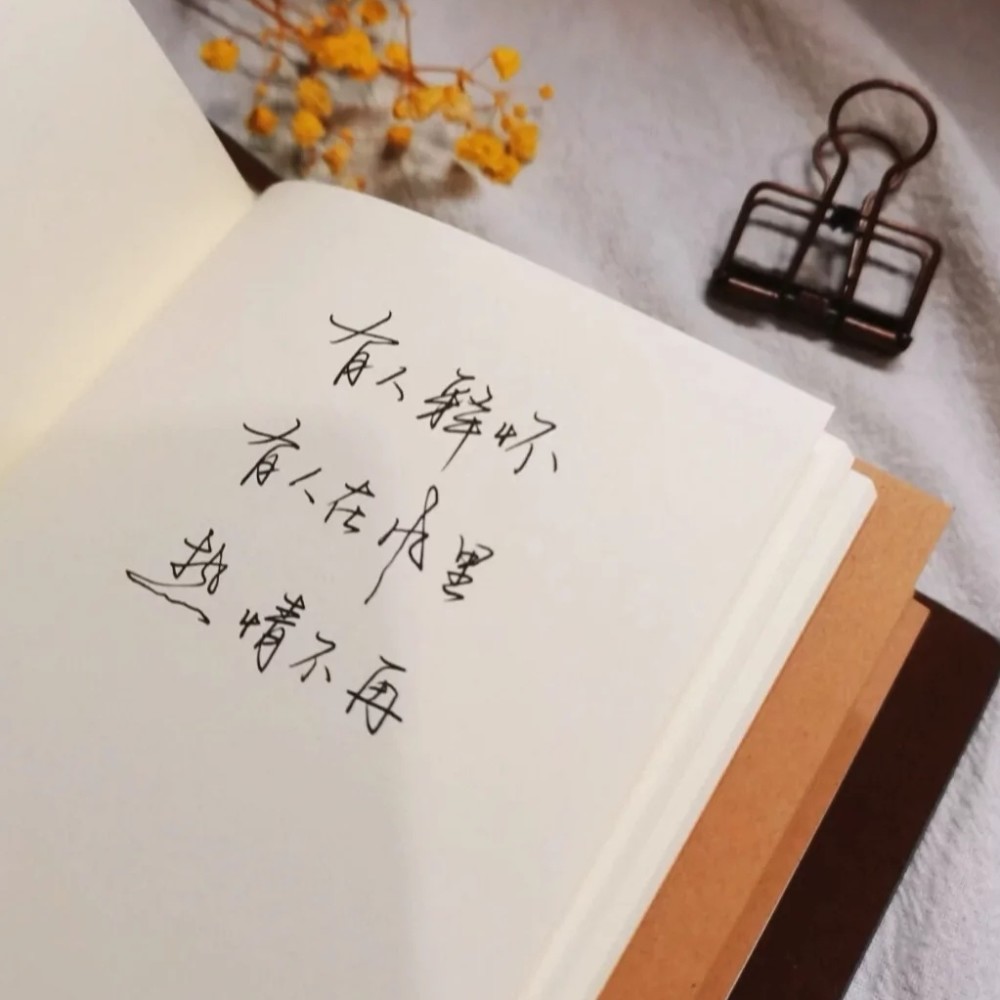 有人释怀
有人在里
热情不再